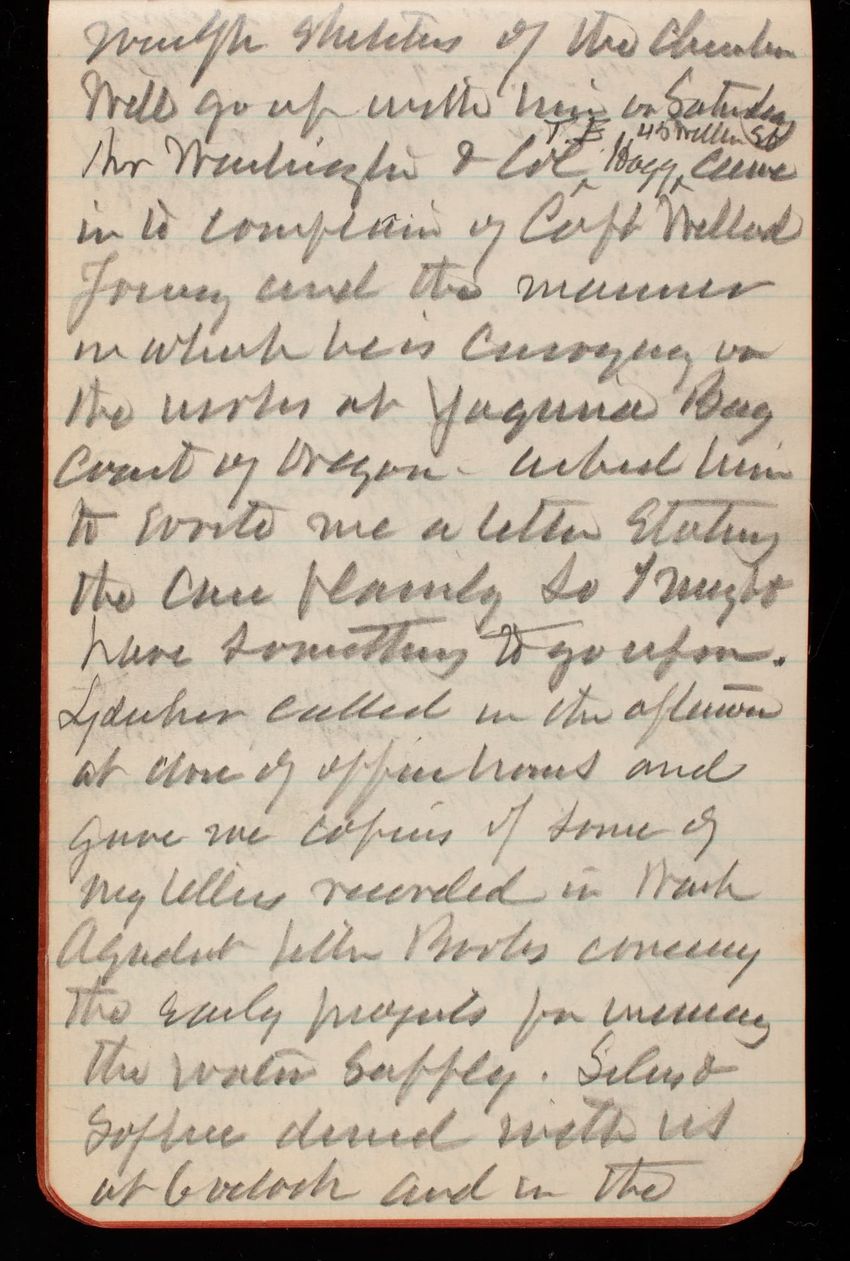 rough sketches of the chamber
Will go up with him on Saturday
Mr Washington & Col ^ T. E. Hogg ^ 45 William St came
in to complain of Capt Willard
Young and the manner
in which he is carrying on
the works at Yaquina Bay
Coast of Oregon - asked him
to write me a letter stating
the case plainly so I might
have something to go upon.
Lydecker called in the afternoon
at close of office hours and
gave me copies of some of
my letters recorded in Wash
Aqueduct letter Books concerning
the early projects for increasing
the water supply. Silas &
Sophie dined with us
at 6 oclock and in the